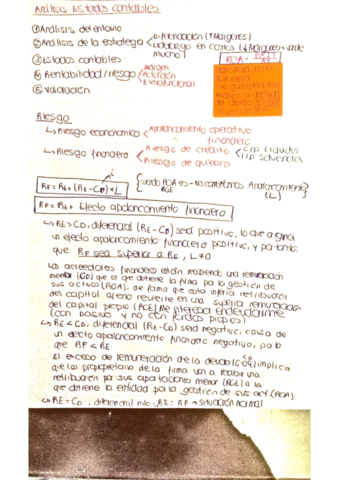 Análisis Estados Contables
① Análisis del entorno
② Análisis de la estrategia < diferenciación (↑Márgenes)
liderazgo en costes (↓Márgenes → vende mucho)
③ Estados contables
ROA = AT
④ Rentabilidad/riesgo < Margen
Rotación
Extrafuncional
⑤ Valoración
Riesgo
↳ Riesgo económico < Apalancamiento operativo
financiero
↳ Riesgo financiero < Riesgo de crédito < C/P Liquidez
L/P solvencia
Riesgo de quiebra
RF = RE + (RE - CD) × L
{cuando ROA es = No comentamos Apalancamiento (L)
ROE
RF = RE + Efecto apalancamiento financiero
↳ RE > CD, diferencial (RE - CD) será positivo, lo que origina
un efecto apalancamiento financiero positivo, y por tanto,
que RF sea superior a RE, L ≠ 0
Los acreedores financieros están recibiendo una remuneración
menor (CD) que lo que obtiene la firma por la gestión de
sus activos (ROA), de forma que esta inferior retribución
del capital ajeno revierte en una superior remuneración
del capital propio (ROE) Me interesa endeudarme
(con pasivo y no con fondos propios)
↳ RE < CD, diferencial (RE - CD) será negativo, causa de
un efecto apalancamiento financiero negativo, por lo
que RF < RE
El exceso de remuneración de la deuda (CD) implica
que los propietarios de la firma van a recibir una
retribución por sus aportaciones menor (ROE) a la
que obtiene la entidad por la gestión de sus act (ROA)
↳ RE = CD, diferencial nulo, RE = RF → situación normal